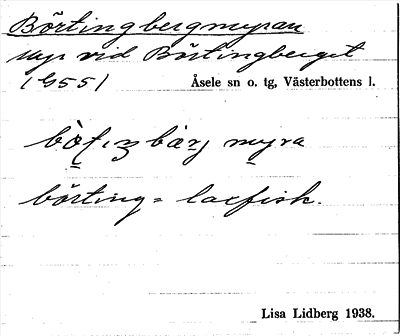 Börtingbergmyran
Myr vid Börtingberget
(G55)
Åsele sn o. tg, Västerbottens l.
myra
börting = laxfisk.
Lisa Lidberg 1938.